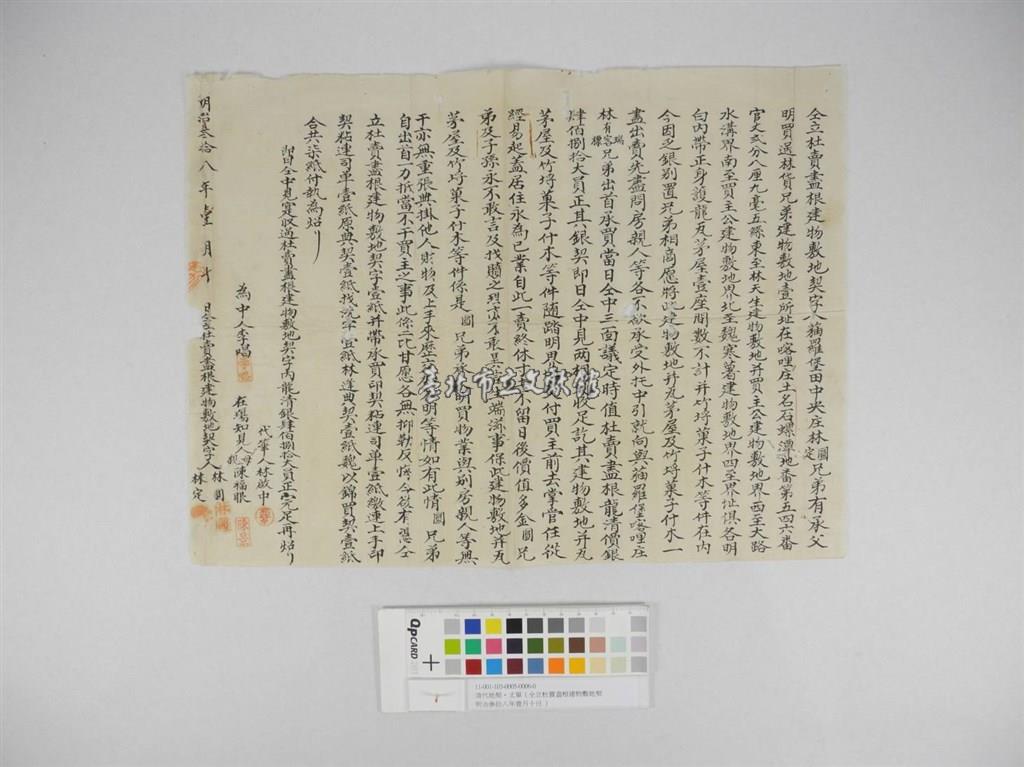 仝立杜賣盡根建物敷地契字人貓羅堡田中央庄林圓定兄弟有承父
明買過林貨兄弟建物敷地壹所址在喀哩庄土名石螺潭地番第五四六番
官丈弍分八厘九毫五絲東至林天生建物敷地并買主公建物敷地界西至大路
水溝界南至買主公建物敷地界北至魏寒薯建物敷地界四至界址俱各明
白內帶正身護龍瓦茅屋壹座間數不計并竹塆菓子什木等件在內
今因乏銀別置兄弟相商愿將此建物敷地并瓦茅屋及竹塆菓子什木一
盡出賣先盡問房親人等各不欲承受外托中引就向與貓羅堡喀哩庄
林有容瑞標兄弟出首承買當日仝中三面議定時值杜賣盡根龍清價銀
肆佰捌拾大員正其銀契即日仝中見兩相收足訖其建物敷地并瓦
茅屋及竹塆菓子什木等件隨踏明界付買主前去掌管任從
經易起蓋居住永為己業自此一賣終休不留日後價值多金圓兄
弟及子孫永不敢言及找贖之敢異言生端滋事保此建物敷地并瓦
茅屋及竹塆菓子什木等件係是圓兄弟明買物業與別房親人等無
干亦無重張典掛他人財物及上手來歷明等情如有此情圓兄弟
自出首一力抵當不干買主之事此係二比甘愿各無抑勒反悔今欲有憑仝
立杜賣盡根建物敷地契字壹紙并帶承買印契粘連司單壹紙繳連上手印
契粘連司單壹紙原典契壹紙找洗字壹紙林道典契壹紙魏以錦買契壹紙
合共柒紙付執為炤
即日仝中見寔收過杜賣盡根建物敷地契字內龍清銀肆佰捌拾大員正完足再炤
代筆人林啟中
在場知見人母親陳福眼
為中人李唱
明治叁拾八年壹月十日仝立杜賣盡根建物敷地契字人林圓
林定
臺北市立文獻館
QPCARD
11-001-103-0005-0006-0
清代地契、丈單（仝立杜賣盡根建物敷地契
明治參拾八年壹月十日）